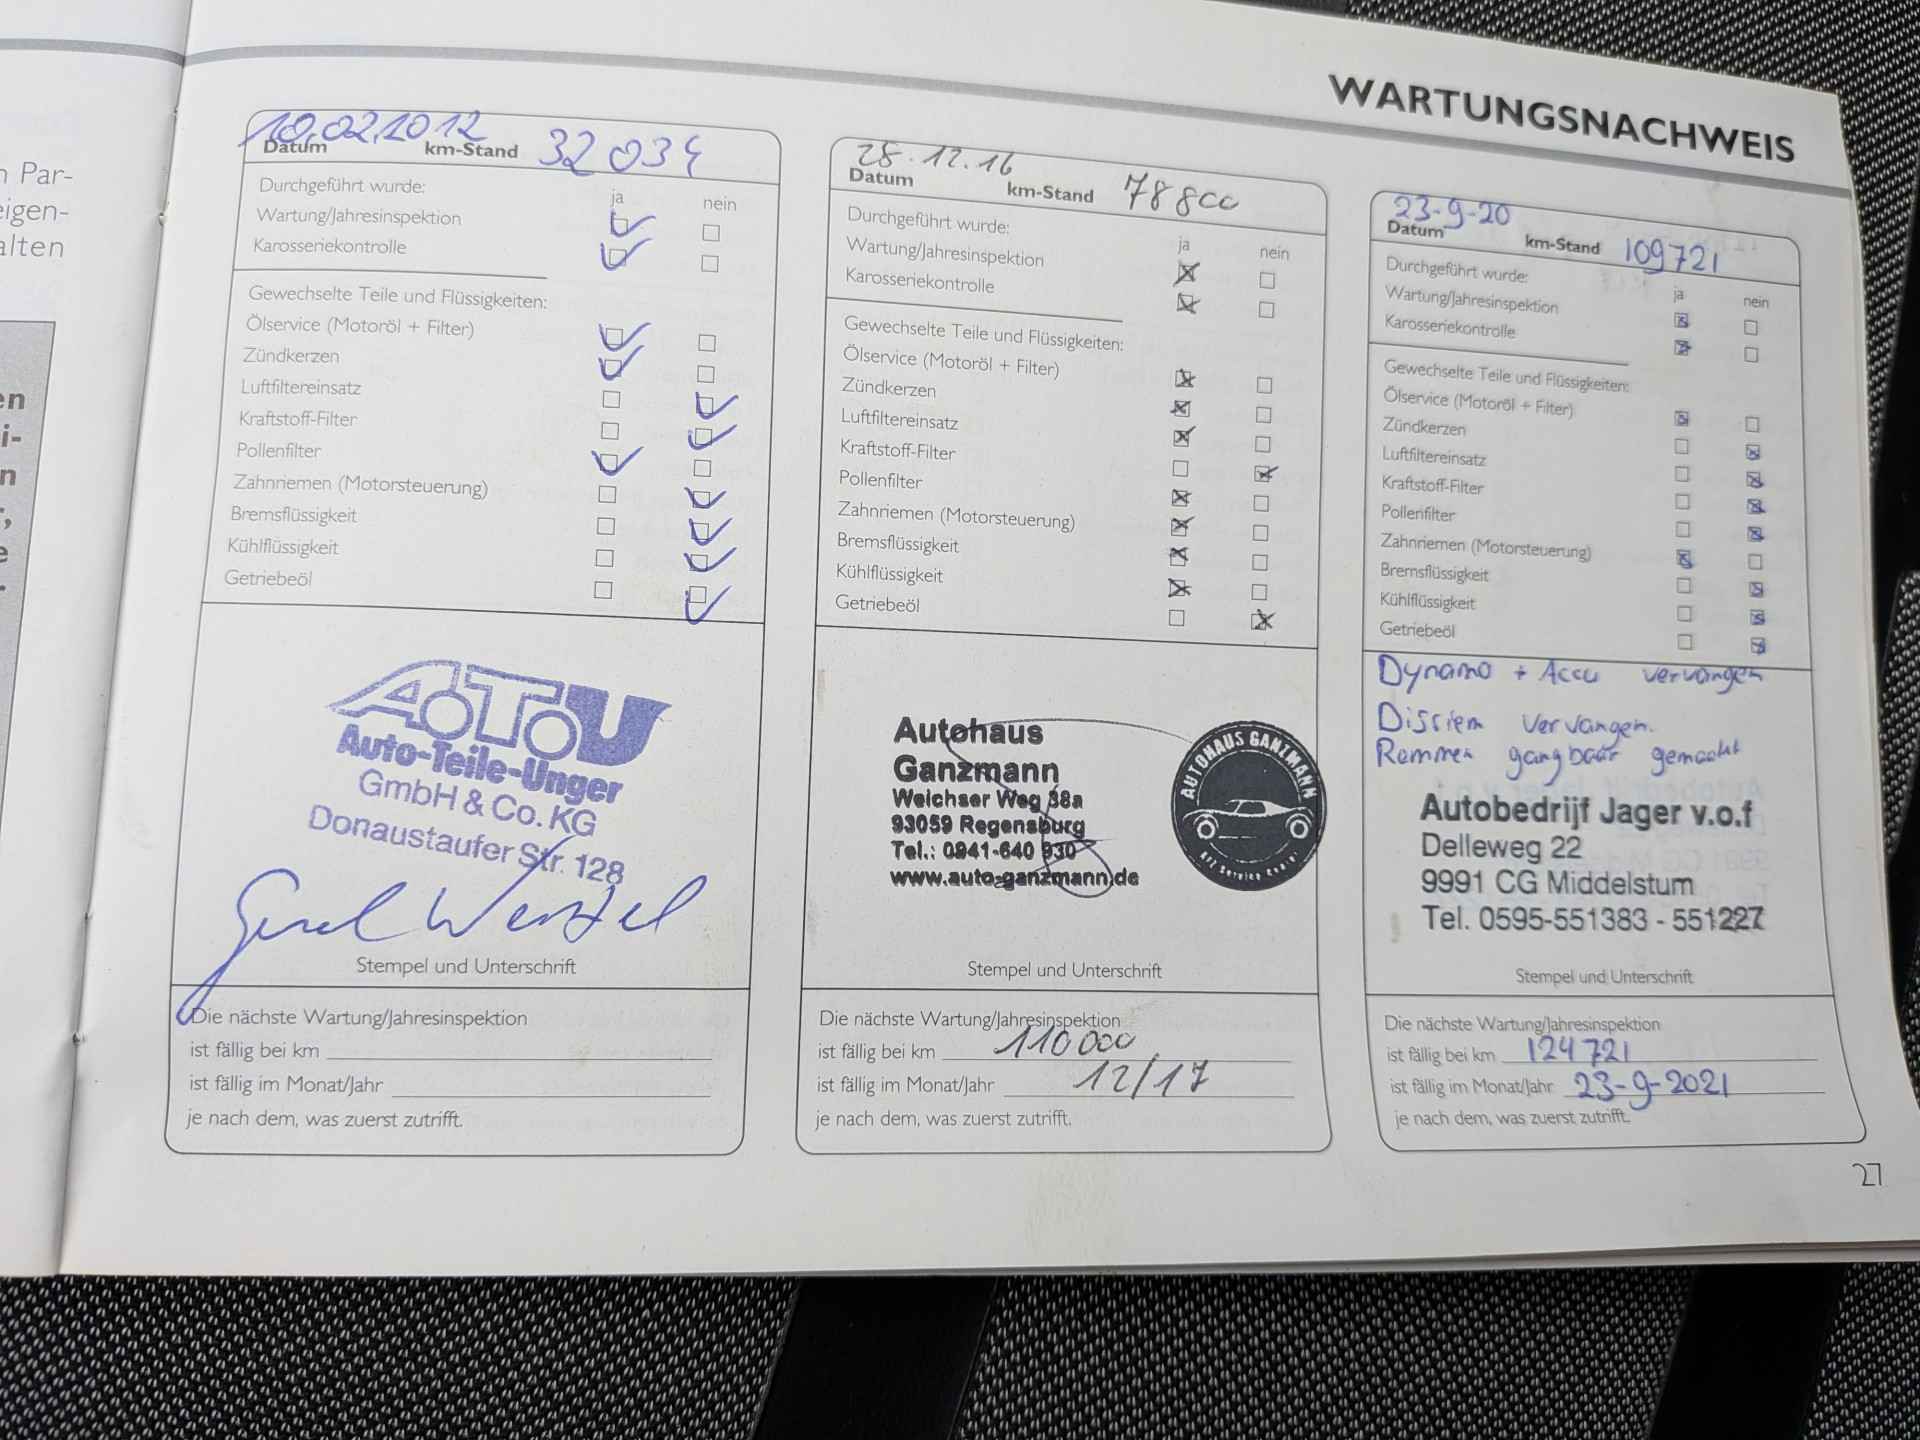 n Par-
eigen-
alten
en
i-
n
,
e
.
WARTUNGSNACHWEIS
10.02.2012 32034
Datum km-Stand
Durchgeführt wurde: ja nein
Wartung/Jahresinspektion
Karosseriekontrolle
Gewechselte Teile und Flüssigkeiten:
Ölservice (Motoröl + Filter)
Zündkerzen
Luftfiltereinsatz
Kraftstoff-Filter
Pollenfilter
Zahnriemen (Motorsteuerung)
Bremsflüssigkeit
Kühlflüssigkeit
Getriebeöl
A.T.U
Auto-Teile-Unger
GmbH & Co. KG
Donaustaufer Str. 128
Stempel und Unterschrift
Die nächste Wartung/Jahresinspektion
ist fällig bei km
ist fällig im Monat/Jahr
je nach dem, was zuerst zutrifft.
28.12.16 78800
Datum km-Stand
Durchgeführt wurde: ja nein
Wartung/Jahresinspektion
Karosseriekontrolle
Gewechselte Teile und Flüssigkeiten:
Ölservice (Motoröl + Filter)
Zündkerzen
Luftfiltereinsatz
Kraftstoff-Filter
Pollenfilter
Zahnriemen (Motorsteuerung)
Bremsflüssigkeit
Kühlflüssigkeit
Getriebeöl
Autohaus
Ganzmann
Weichser Weg 38a
93059 Regensburg
Tel.: 0941-640 930
www.auto-ganzmann.de
AUTOHAUS GANZMANN
Stempel und Unterschrift
Die nächste Wartung/Jahresinspektion
ist fällig bei km 110000
ist fällig im Monat/Jahr 12/17
je nach dem, was zuerst zutrifft.
23-9-20 109721
Datum km-Stand
Durchgeführt wurde: ja nein
Wartung/Jahresinspektion
Karosseriekontrolle
Gewechselte Teile und Flüssigkeiten:
Ölservice (Motoröl + Filter)
Zündkerzen
Luftfiltereinsatz
Kraftstoff-Filter
Pollenfilter
Zahnriemen (Motorsteuerung)
Bremsflüssigkeit
Kühlflüssigkeit
Getriebeöl
Dynamo + Accu vervangen
Disriem vervangen.
Remmen gangbaar gemaakt
Autobedrijf Jager v.o.f
Delleweg 22
9991 CG Middelstum
Tel. 0595-551383 - 551227
Stempel und Unterschrift
Die nächste Wartung/Jahresinspektion
ist fällig bei km 124721
ist fällig im Monat/Jahr 23-9-2021
je nach dem, was zuerst zutrifft.
27